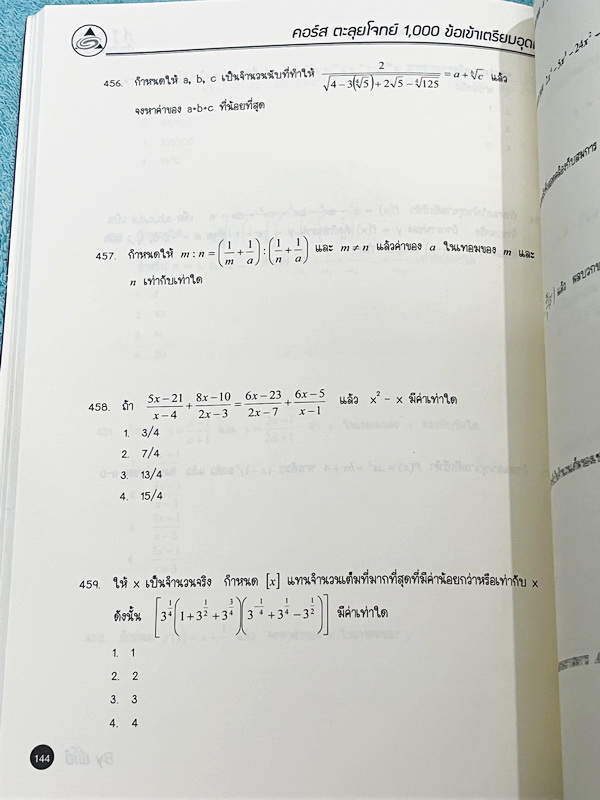 คอร์ส ตะลุยโจทย์ 1,000 ข้อเข้าเตรียมอุดม
456. กำหนดให้ a, b, c เป็นจำนวนนับที่ทำให้ 2/√(4−3(⁴√5)+2√5−⁴√125) = a+ᵇ√c แล้ว
จงหาค่าของ a+b+c ที่น้อยที่สุด
457. กำหนดให้ m : n = (1/m + 1/a) : (1/n + 1/a) และ m ≠ n แล้วค่าของ a ในเทอมของ m และ
n เท่ากับเท่าใด
458. ถ้า (5x−21)/(x−4) + (8x−10)/(2x−3) = (6x−23)/(2x−7) + (6x−5)/(x−1) แล้ว x² − x มีค่าเท่าใด
1. 3/4
2. 7/4
3. 13/4
4. 15/4
459. ให้ x เป็นจำนวนจริง กำหนด [x] แทนจำนวนเต็มที่มากที่สุดที่มีค่าน้อยกว่าหรือเท่ากับ x
ดังนั้น [3^(1/4)(1+3^(1/2)+3^(3/4))(3^(−1/4)+3^(1/4)−3^(1/2))] มีค่าเท่าใด
1. 1
2. 2
3. 3
4. 4
144